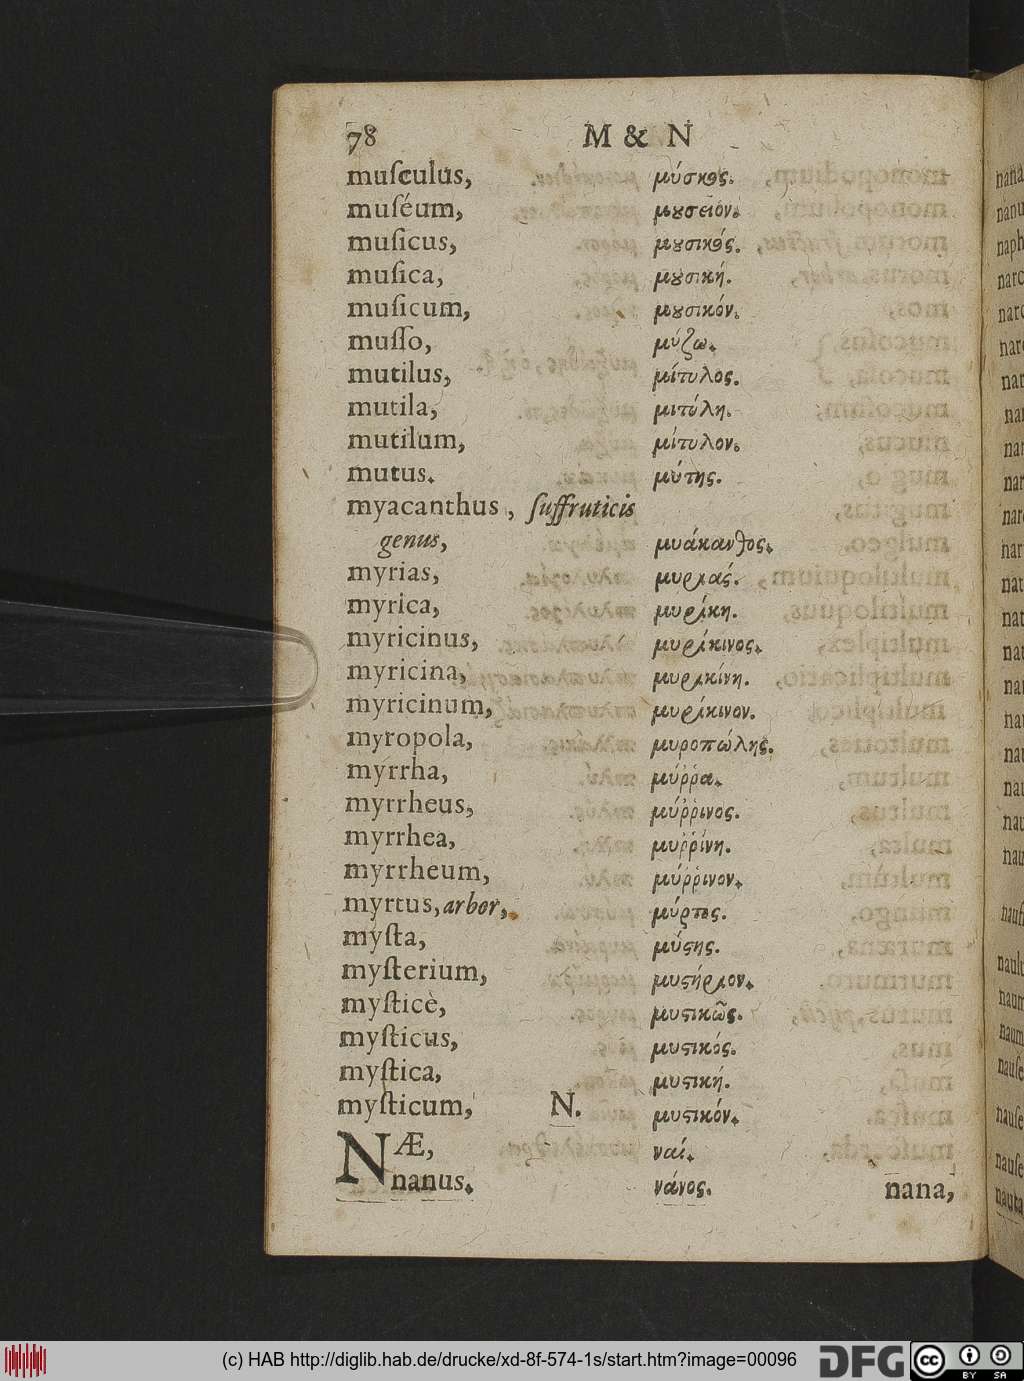 78 M & N
muſculus, μύσκος.
muſéum, μουσεῖον.
muſicus, μουσικός.
muſica, μουσική.
muſicum, μουσικόν.
muſſo, μύζω.
mutilus, μίτυλος.
mutila, μιτύλη.
mutilum, μίτυλον.
mutus. μύτης.
myacanthus, ſuffruticis
genus, μυάκανθος.
myrias, μυριάς.
myrica, μυρίκη.
myricinus, μυρίκινος.
myricina, μυρικίνη.
myricinum, μυρίκινον.
myropola, μυροπώλης.
myrrha, μύῤῥα.
myrrheus, μύῤῥινος.
myrrhea, μυῤῥίνη.
myrrheum, μύῤῥινον.
myrtus, arbor, μύρτος.
myſta, μύϛης.
myſterium, μυϛήριον.
myſticè, μυϛικῶς.
myſticus, μυϛικός.
myſtica, μυϛική.
myſticum, μυϛικόν.
N.
NÆ, ναί.
nanus. νάνος.
nana,
(c) HAB http://diglib.hab.de/drucke/xd-8f-574-1s/start.htm?image=00096
DFG
cc BY SA